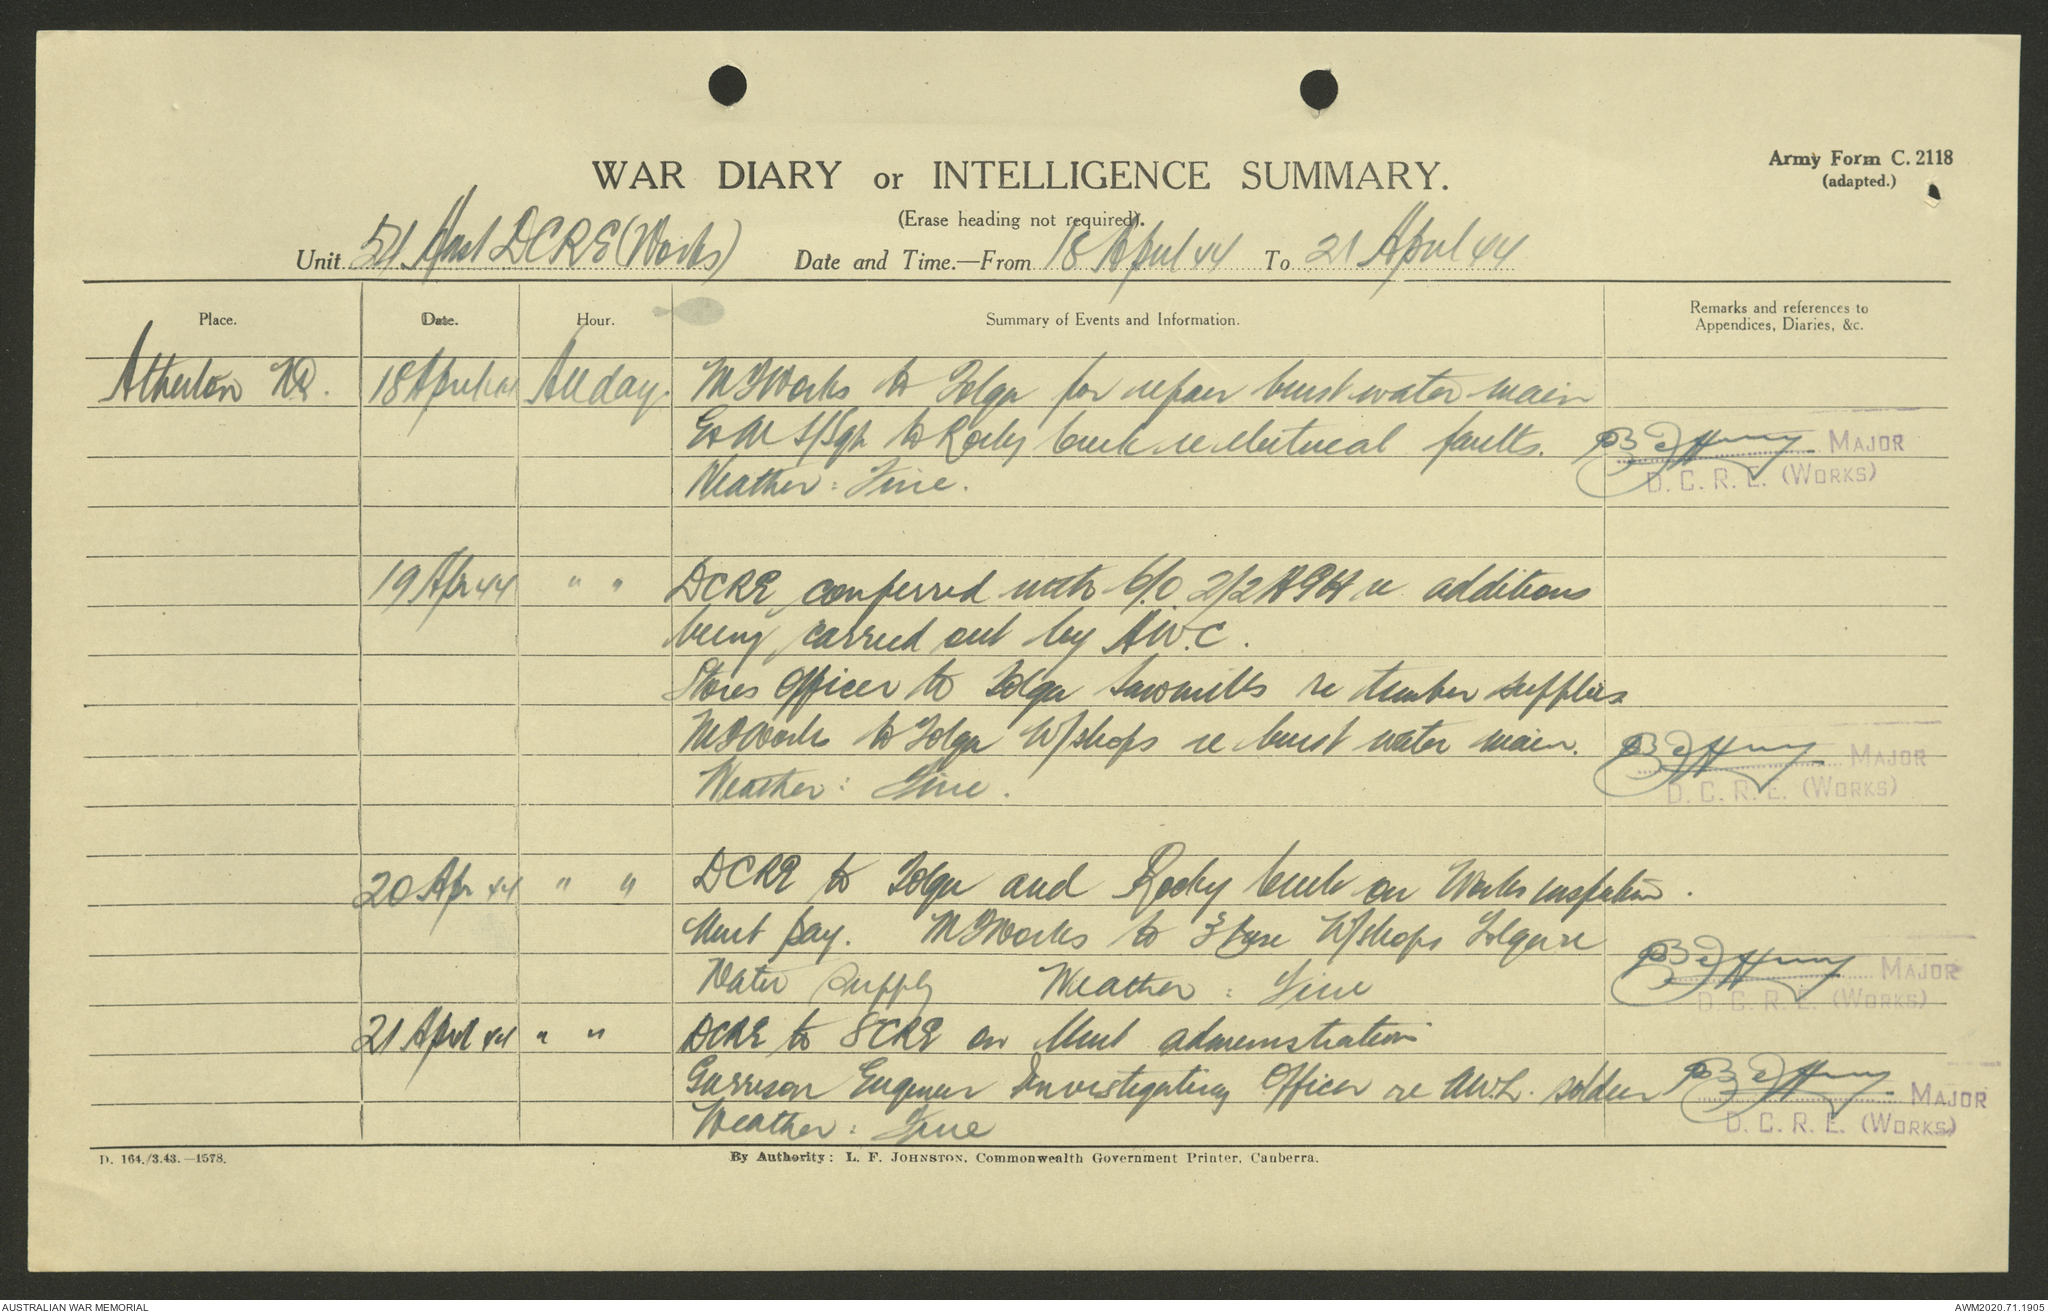 Army Form C. 2118
(adapted.)
WAR DIARY or INTELLIGENCE SUMMARY.
(Erase heading not required).
Unit 54 Aust DCRE (Works) Date and Time.—From 18 April 44 To 21 April 44
Place. Date. Hour. Summary of Events and Information. Remarks and references to
Appendices, Diaries, &c.
Atherton NQ. 18 April 44 All day. M I Works to Tolga for repair burst water main
E & M S/Sgt to Rocky Creek re electrical faults. MAJOR
Weather: Fine. D. C. R. E. (WORKS)
19 Apr 44 " " DCRE conferred with C/O 2/2 AGH re additions
being carried out by AWC.
Stores Officer to Tolga Sawmills re timber supplies
MI Works to Tolga W/shops re burst water main. MAJOR
Weather: Fine. D. C. R. E. (WORKS)
20 Apr 44 " " DCRE to Tolga and Rocky Creek on Works inspection.
Unit pay. MI Works to 3 W/shops Tolga re MAJOR
Water Supply Weather: Fine D. C. R. E. (WORKS)
21 April 44 " " DCRE to on Unit administration
Garrison Engineer Investigating Officer re A.W.L. soldier MAJOR
Weather: Fine D. C. R. E. (WORKS)
D. 164./3.43.—1578. By Authority: L. F. JOHNSTON, Commonwealth Government Printer, Canberra.
AUSTRALIAN WAR MEMORIAL AWM2020.71.1905